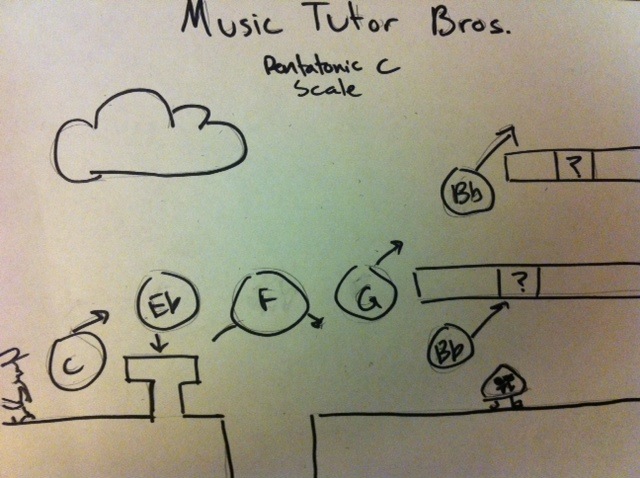 Music Tutor Bros.
Pentatonic C
Scale
Bb
?
?
Eb
F
G
C
Bb